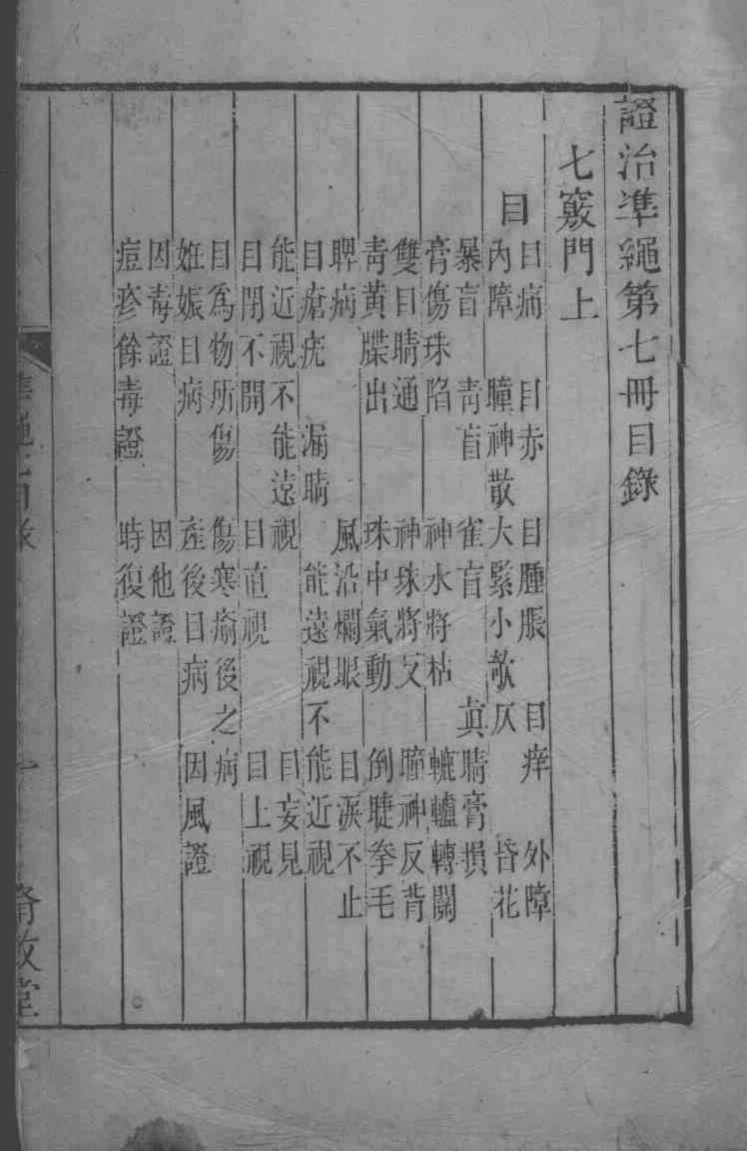 證治準繩第七冊目錄
七竅門上
目
目痛 目赤 目腫脹 目痒 外障
內障 瞳神散大 緊小 欹仄 昏花
暴盲 青盲 雀盲 真睛膏損
膏傷珠陷 神水將枯 轆轤轉關
雙目睛通 神珠將反 瞳神反背
青黃牒出 珠中氣動 倒睫拳毛
睥病 風沿爛眼 目淚不止
目瘡疣 漏睛 能遠視不能近視
能近視不能遠視 目妄見
目閉不開 目直視 目上視
目為物所傷 傷寒瘉後之病
姙娠目病 產後目病 因風證
因毒證 因他證
痘疹餘毒證 時復證